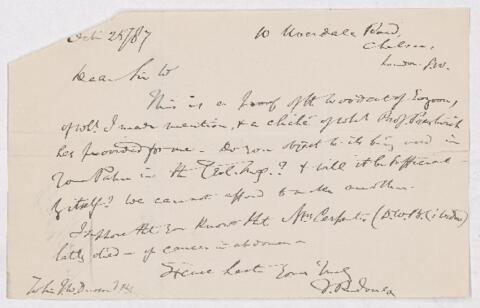 Oct. 25/87
10 Uverdale Road,
Chelsea,
London. S.W.
Dear Sir W
This is a proof of the woodcut of Eozoon,
of wh. I made mention, & a cliché of wh. Prof Prestwich
has provided for me - Do you object to its being used in
your Paper in the Geol. Mag.? & will it be sufficient
by itself? We cannot afford to another.
I suppose that you know that Mrs Carpenter (Dr W. B. C.'s widow)
lately died - of cancer in abdomen -
Hence Yours truly
Sir J W Dawson